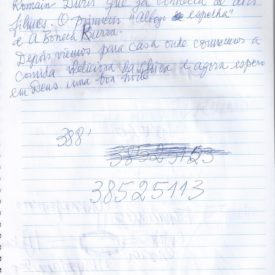 Romain Duris que já conhecia de dois
filmes. O primeiro "Albergue espanhol"
e A Boneca Russa.
Depois viemos para casa onde comemos a
comida deliciosa da e agora espero
em Deus uma boa noite
388
38525113
38525113